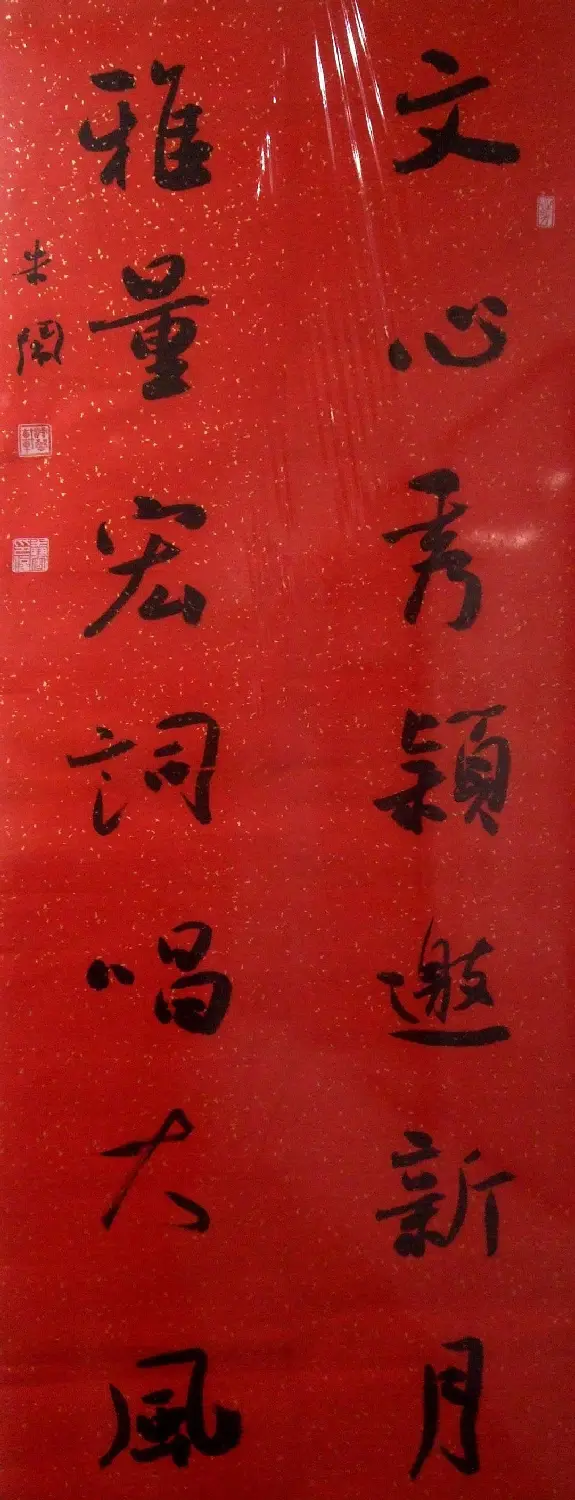 文心秀颖邀新月
雅量宏詞唱大風